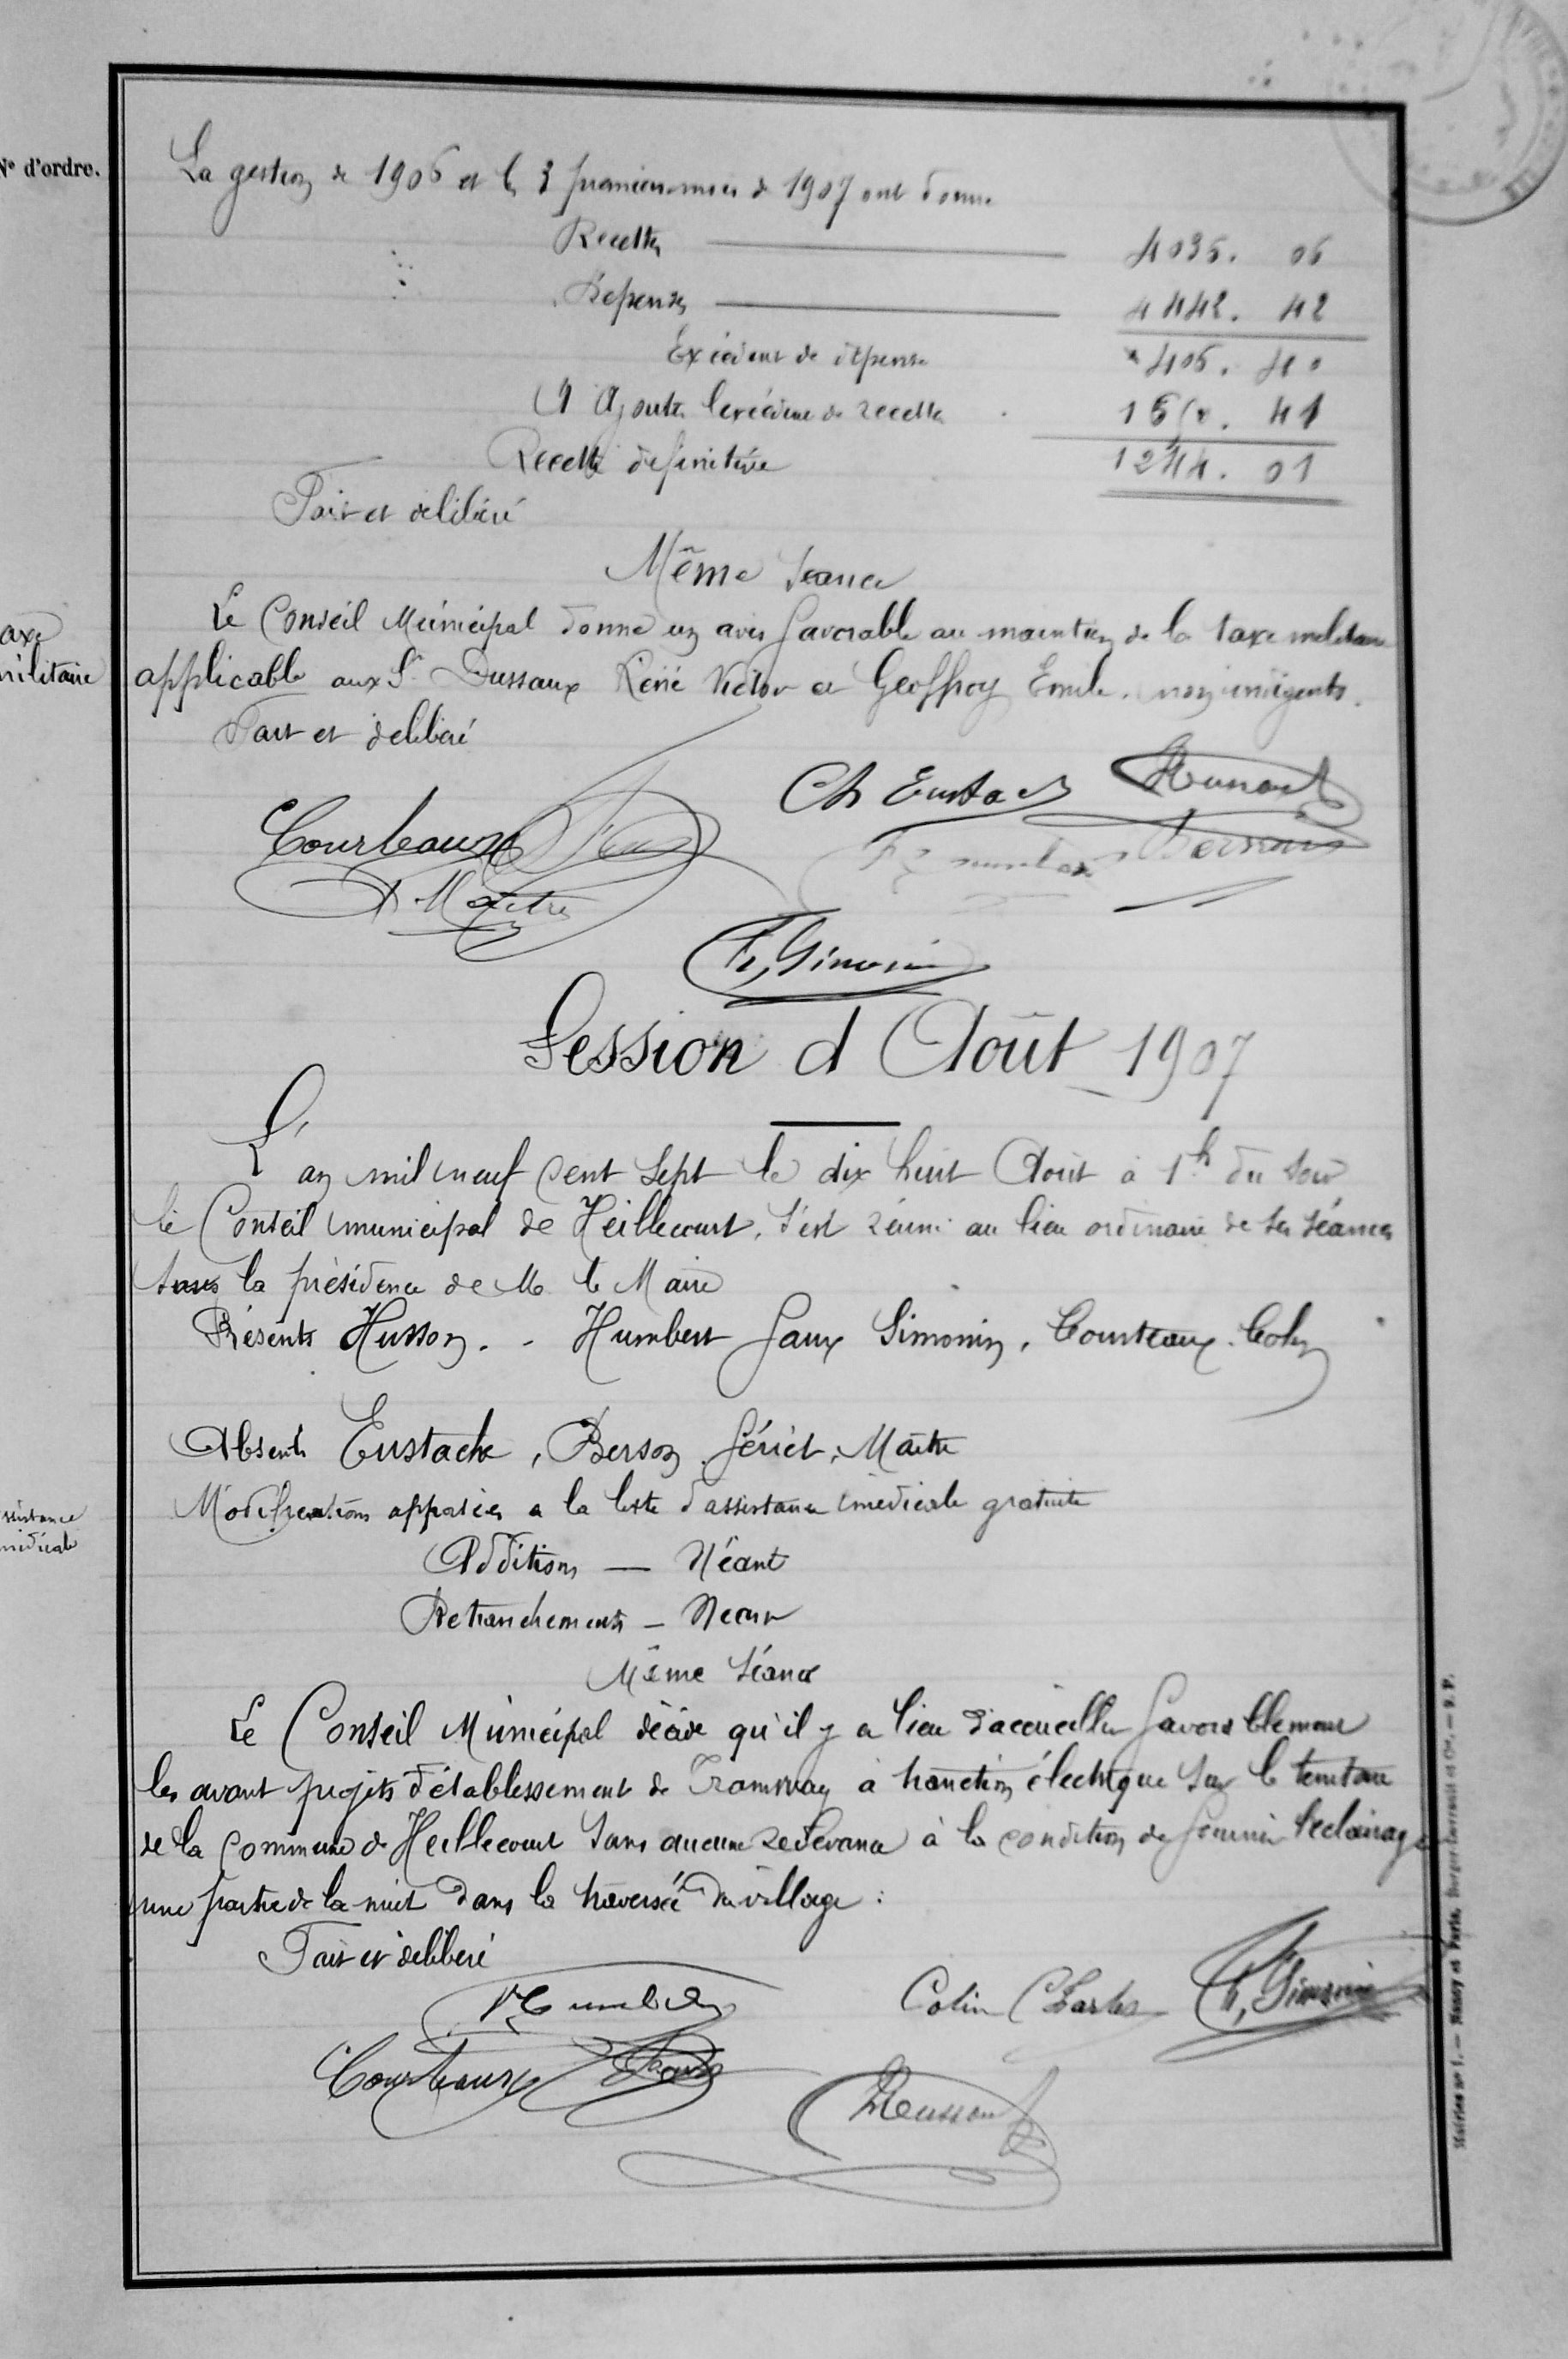 N° d'ordre.
La gestion de 1906 et les 3 premiers mois de 1907 ont donné
Recettes 4036. 06
Dépenses 4442. 42
Excédent de dépense 406. 40
A Ajouter l'excédent de recette 41
Recette définitive 1244. 01
Fait et délibéré
Même séance
axe
militaire
Le Conseil Municipal donne un avis favorable au maintien de la taxe militaire
applicable aux Sr Dussaux René Victor et Geoffroy Emile. non indigents.
Fait et délibéré
Ch Eustache
Courteaux
Maitre
Ch, Simonin
Session d Août 1907
L'an mil neuf cent sept le dix huit Août à 1h du soir
le Conseil municipal de Heillecourt. s'est réuni au lieu ordinaire de ses séances
sous la présidence de M. le Maire
Présents Husson. - Humbert Faux Simonin, Courteaux. Colin
Absents Eustache, Berson, Fériet, Maitre
ssistance
médicale
Modifications apposées a la liste d'assistance médicale gratuite
Additions — Néant
Retranchements — Néant
Même Séance
Le Conseil Municipal décide qu'il y a lieu d'accueillir favorablement
les avant projets d'établissement de Tramway à tranction électrique sur le territoire
de la commune de Heillecourt sans aucune redevance à la condition de fournir l'éclairage
une partie de la nuit dans la traversée du village :
Fait et délibéré
Humbert
Colin Charles
Ch, Simonin
Courteaux
Faux
Husson
Mairies n° 1. — Nancy et Paris, Berger-Levrault et Cie. — 9. P.